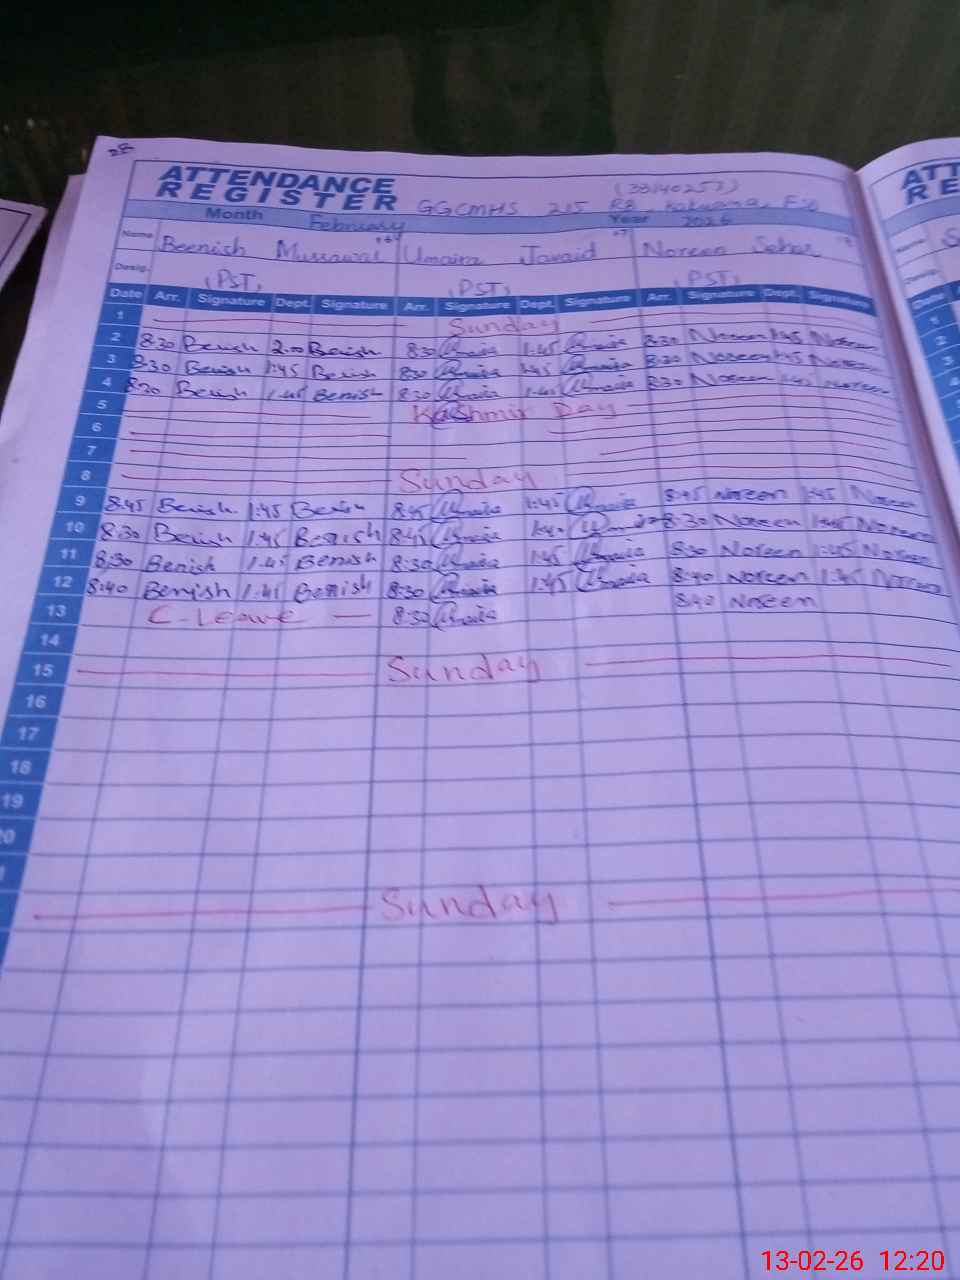 28
ATTENDANCE
REGISTER GGCMHS 215 RB Kakuana, FSD (33140257)
Month February Year 2026
Name Beenish Musawar Umaira Javaid Noreen Sehar
Desig. (PST) (PST) (PST)
Date Arr. Signature Dept. Signature Arr. Signature Dept. Signature Arr. Signature Dept. Signature
1 Sunday
2 8:30 Benish 2:00 Benish 8:30 Umaira 1:45 Umaira 8:30 Noreen 1:45 Noreen
3 8:30 Benish 1:45 Benish 8:30 Umaira 1:45 Umaira 8:30 Noreen 1:45 Noreen
4 8:30 Benish 1:45 Benish 8:30 Umaira 1:45 Umaira 8:30 Noreen 1:45 Noreen
5 Kashmir Day
6
7
8 Sunday
9 8:45 Benish 1:45 Benish 8:45 Umaira 1:45 Umaira 8:45 Noreen 1:45 Noreen
10 8:30 Benish 1:45 Benish 8:45 Umaira 1:40 8:30 Noreen 1:45 Noreen
11 8:30 Benish 1:45 Benish 8:30 Umaira 1:45 Umaira 8:30 Noreen 1:45 Noreen
12 8:40 Benish 1:45 Benish 8:30 Umaira 1:45 Umaira 8:40 Noreen 1:45 Noreen
13 C-Leave 8:30 Umaira 8:40 Noreen
14
15 Sunday
16
17
18
19
Sunday
ATT
RE
Name
Date
1
2
3
4
13-02-26 12:20